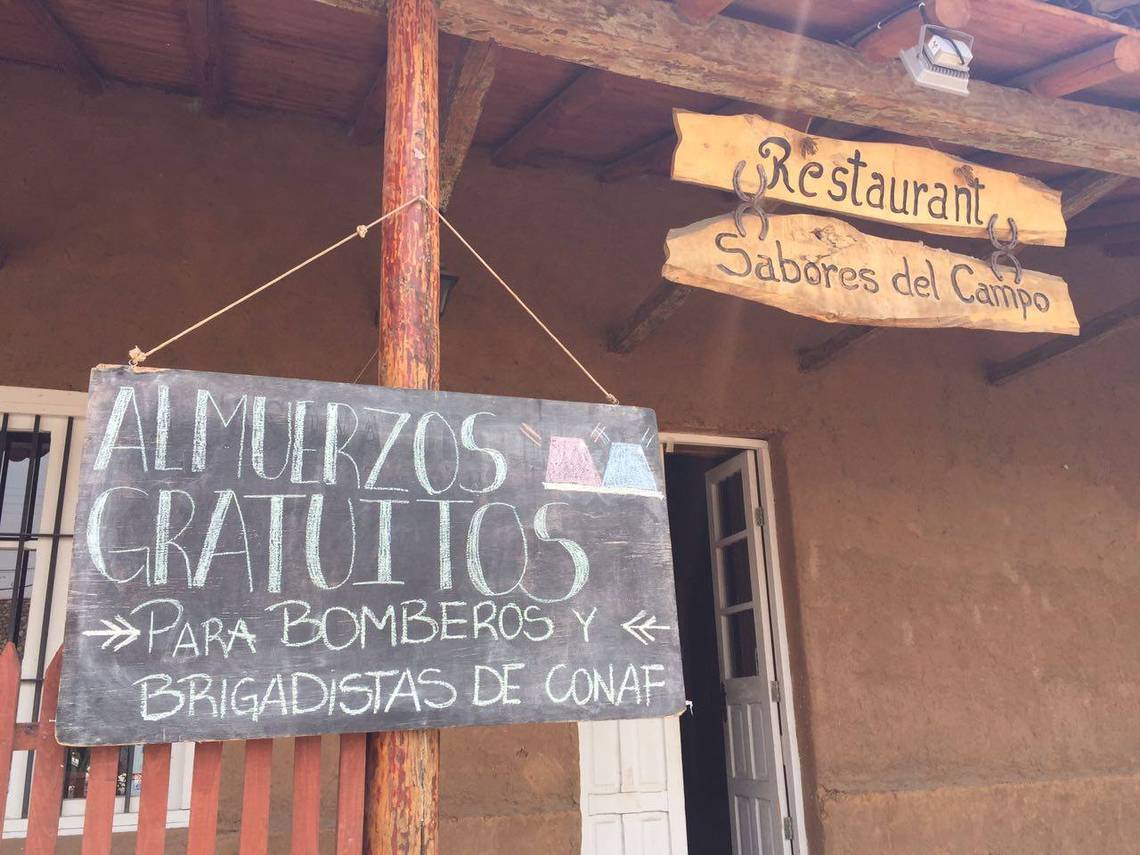 Restaurant
Sabores del Campo
ALMUERZOS
GRATUITOS
PARA BOMBEROS Y
BRIGADISTAS DE CONAF